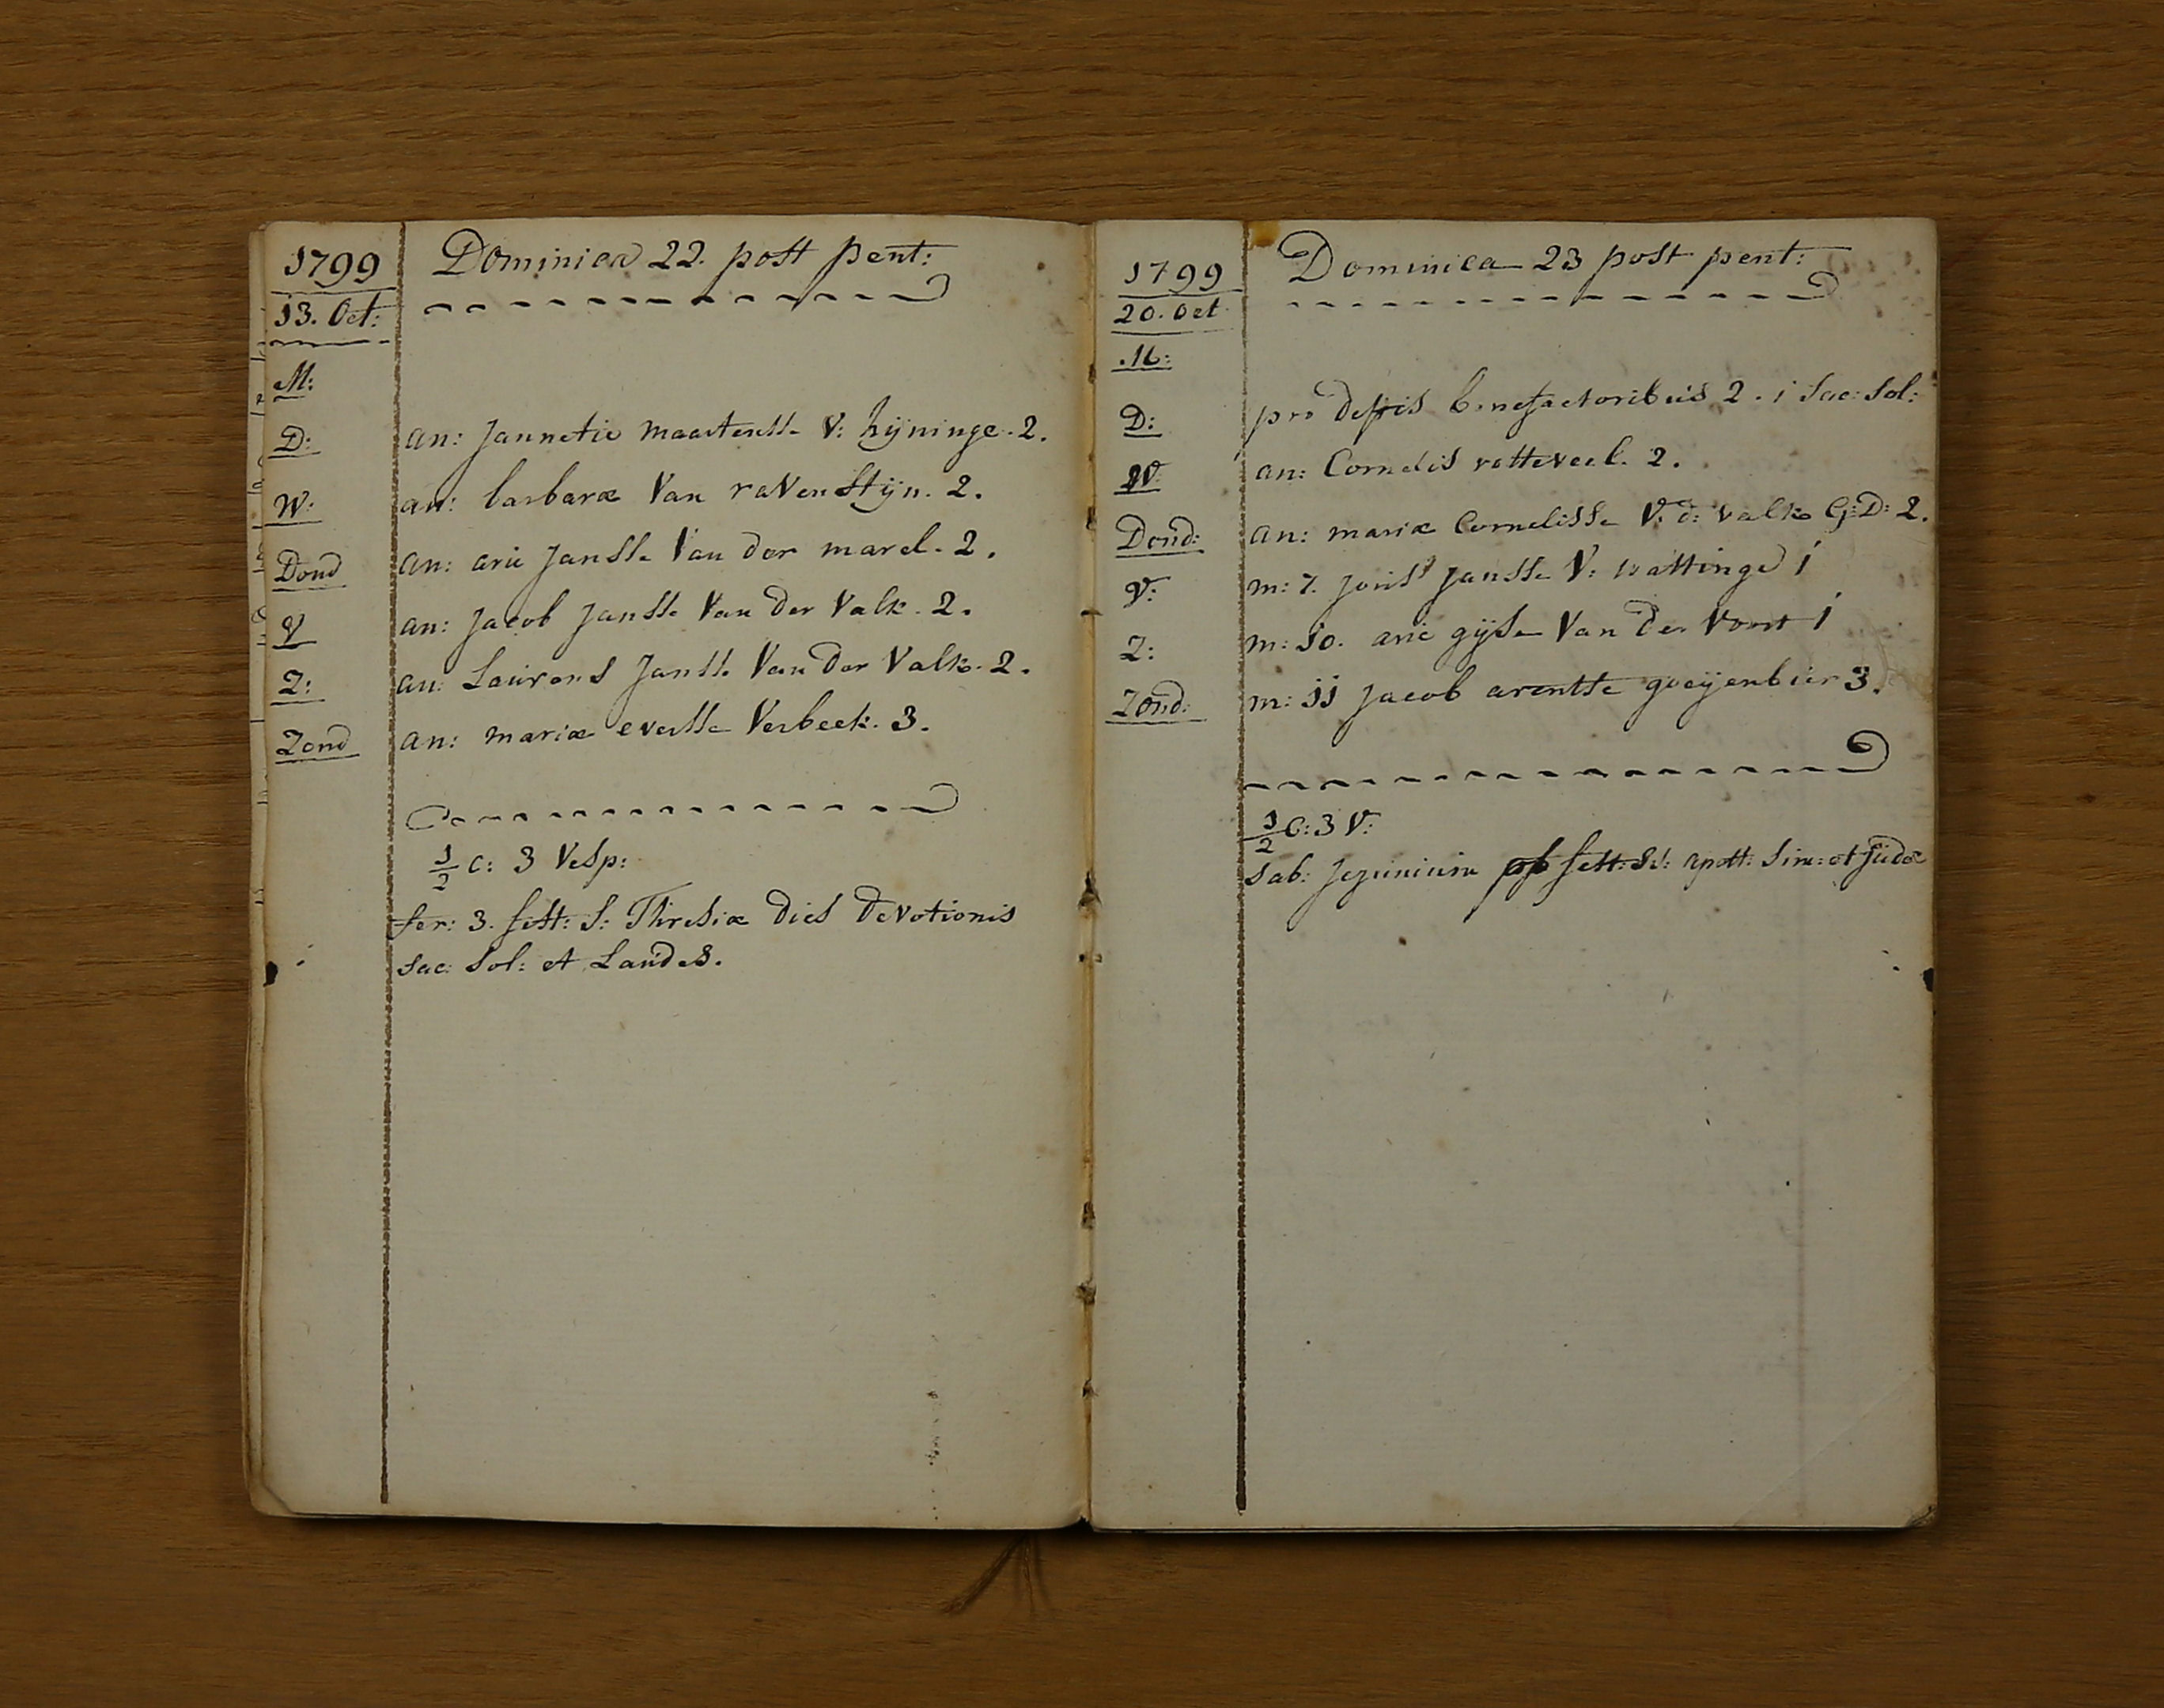 1799
13. Oct:
Dominica 22. post pent:
M:
D: an: Jannetie maartensse V: hijninge. 2.
W: an: barbaræ Van ravenstijn. 2.
Dond an: arie Jansse Van der marel. 2.
V an: Jacob Jansse Van der Valk. 2.
Z: an: Laurens Jansse Van der Valk. 2.
Zond an: mariæ evertse Verbeek. 3.
1/2 c: 3 Vesp:
fer: 3. fest: S: Thresiæ dies devotionis
sac: sol: et Laudes.
1799
20. Oct
Dominica 23 post pent:
M:
D: pro defctis benefactoribus 2. i sac: sol:
W: an: Cornelis rotteveel. 2.
Dond: an: mariæ Cornelisse V: d: valk G: D: 2.
V: m: 7. Joris Jansse V: wattinge i
Z: m: 10. arie gijse Van der Voort i
Zond: m: 11 Jacob arentse goeijenbier 3.
1/2 C: 3 V:
Sab: Jejunium ob fest: SS: apost: Sim: et Judæ